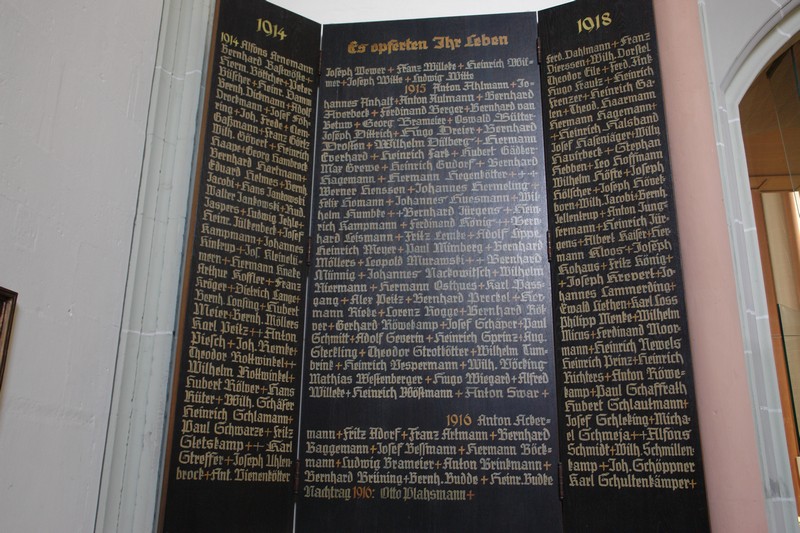 1914
1914 Alfons Arnemann
Bernhard
Herm. Böttcher + Peter
Büscher + Heinr. Damm
Bernh. Diekmann + Adolf
Dreckmann + Josef Föh-
ring + Joh. Frede + Clem.
Gaßmann + Franz Goertz
Wilh. Gövert + Heinrich
Kaape + Georg Hambrock
Bernhard Hartmann +
Eduard Helmes + Bernh.
Jacobi + Hans Jankowski
Walter Jankowski + Rud.
Jaspers + Ludwig Jehle +
Heinr. Jüldenbeck + Josef
Kampmann + Johannes
Kintrup + Jos. Kleineli-
mern + Hermann
Arthur Köffler + Franz
Kröger + Dietrich Lange +
Bernh. Lonsing + Hubert
Meier + Bernh. Möllers
Karl Peitz + + Anton
Piosch + Joh. Remke +
Theodor Rottwinkel +
Wilhelm Rottwinkel +
Hubert Rölver + Hans
Rüter + Wilh. Schäfer
Heinrich Schlamann +
Paul Schwarze + Fritz
Gletskamp + + Karl
Streffer + Joseph Uhlen-
brock + Ant. Vienenkötter
Es opferten Ihr Leben
Joseph Wewer + Franz Willeke + Heinrich Wit-
mer + Joseph Witte + Ludwig Witte
1915 Anton Ahlmann + Jo-
hannes Anhalt + Anton Aulmann + Bernhard
Averbeck + Ferdinand Berger + Bernhard van
Betum + Georg Brameier + Oswald Bütter
Joseph Dittrich + Hugo Dreier + Bernhard
Drosson + Wilhelm Dülberg + Hermann
Everhard + Heinrich Farb + Hubert Gädker
Max Grewe + Heinrich Gudorf + Bernhard
Hagemann + Hermann Hegenkötter + + +
Werner Henssen + Johannes Hermeling +
Felix Homann + Johannes Huesmann + Wil-
helm Humbte + + Bernhard Jürgens + Hein-
rich Kampmann + Ferdinand König + + Bern-
hard Leismann + Fritz Lemke + Adolf Lippe
Heinrich Meyer + Paul Mümberg + Bernhard
Möllers + Leopold Muramski + + Bernhard
Münnig + Johannes Nackowitsch + Wilhelm
Niermann + Hermann Osthues + Karl Pass-
gang + Alex Peitz + Bernhard Preckel + Her-
mann Rieke + Lorenz Rogge + Bernhard Röl-
ver + Gerhard Röwekamp + Josef Schäper + Paul
Schmitt + Adolf Severin + Heinrich Sprinz + Aug.
Steckling + Theodor Strotkötter + Wilhelm Tum-
brink + Heinrich Vespermann + Wilh. Böcking
Mathias Westenberger + Hugo Wiegard + Alfred
Willeke + Heinrich Wöstmann + Anton Swar +
1916 Anton Acker-
mann + Fritz Adorf + Franz Artmann + Bernhard
Baggemann + Josef Bessmann + Hermann Böck-
mann + Ludwig Brameier + Anton Brinkmann +
Bernhard Brüning + Bernh. Budde + Heinr. Budke
Nachtrag 1916: Otto Plahsmann +
1918
Ferd. Dahlmann + Franz
Dierssen + Wilh. Dorstel
Theodor Eile + Ferd. Fink
Hugo Frantz + Heinrich
Frenzer + Heinrich Ga-
len + Theod. Haarmann
Hermann Hagemann +
+ Heinrich Halsband
Josef Hasenjäger + Wilh.
Havixbeck + Stephan
Hebben + Leo Hoffmann
Wilhelm Höfte + Josef
Hölscher + Joseph Hövel
born + Wilh. Jacobi + Bernh.
Jellentrup + Anton Jung-
fermann + Heinrich Jür-
gens + Albert Kaiser + Her-
mann Kloos + Joseph
Kohaus + Fritz König +
+ Joseph Kreverl + Jo-
hannes Lammerding +
Ewald Liethen + Karl Loss
Philipp Menke + Wilhelm
Micus + Ferdinand Moor-
mann + Heinrich Newels
Heinrich Prinz + Heinrich
Richters + Anton Röwe-
kamp + Paul Schaffrath
Hubert Schlautmann +
Josef Schleking + Micha-
el Schmeja + + Alfons
Schmidt + Wilh. Schmillen-
kamp + Joh. Schöppner
Karl Schultenkämper +